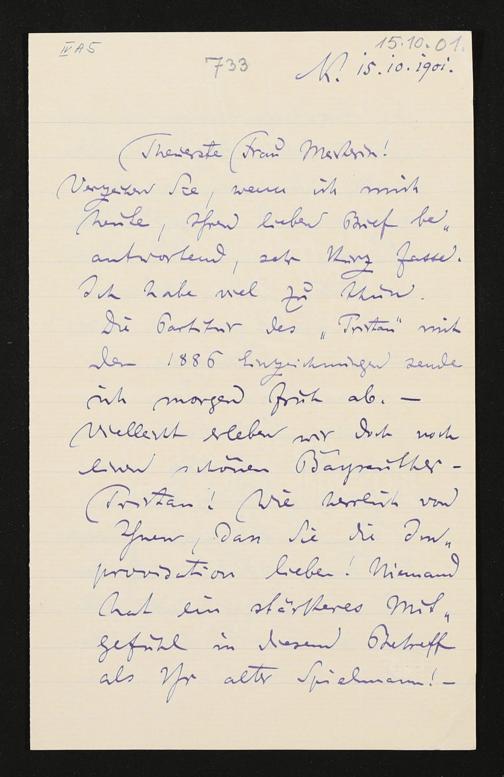 IV A 5
15.10.01.
733
K. 15.10.1901.
Theuerste Frau Meisterin!
Verzeihen Sie, wenn ich mich
heute, Ihren lieben Brief be„
antwortend, sehr kurz fasse.
Ich habe viel zu thun.
Die Partitur des „Tristan" mit
den 1886 Einzeichnungen sende
ich morgen früh ab. —
Vielleicht erleben wir doch noch
einen schönen Bayreuther-
Tristan! Wie herrlich von
Ihnen, dass Sie die Im„
provisation lieben! Niemand
hat ein stärkeres Mit„
gefühl in diesem Betreff
als Ihr alter Spielmann! —